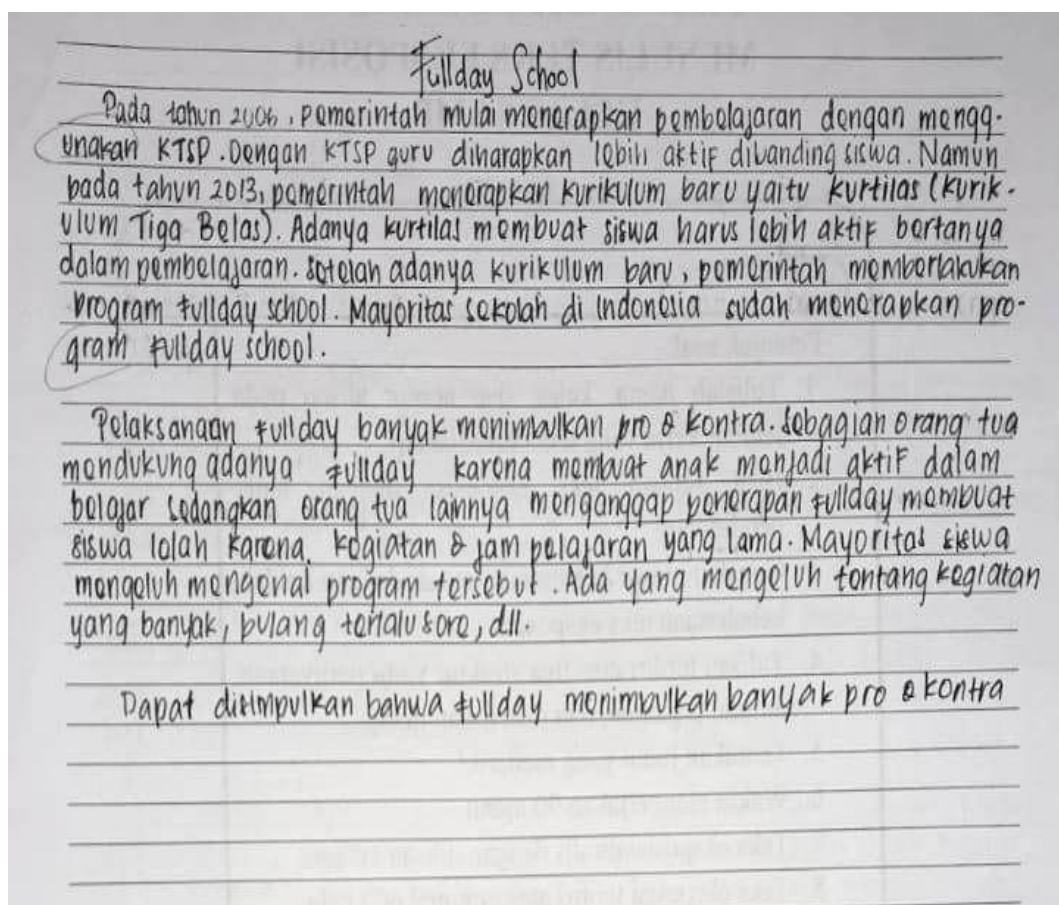 Fullday School
Pada tahun 2006, pemerintah mulai menerapkan pembelajaran dengan mengg-
unakan KTSP. Dengan KTSP guru diharapkan lebih aktif dibanding siswa. Namun
pada tahun 2013, pemerintah menerapkan kurikulum baru yaitu kurtilas (kurik-
ulum Tiga Belas). Adanya kurtilas membuat siswa harus lebih aktif bertanya
dalam pembelajaran. setelah adanya kurikulum baru, pemerintah memberlakukan
program fullday school. Mayoritas sekolah di Indonesia sudah menerapkan pro-
gram fullday school.
Pelaksanaan fullday banyak menimbulkan pro & kontra. Sebagian orang tua
mendukung adanya fullday karena membuat anak menjadi aktif dalam
belajar sedangkan orang tua lainnya menganggap penerapan fullday membuat
siswa lelah karena kegiatan & jam pelajaran yang lama. Mayoritas siswa
mengeluh mengenai program tersebut. Ada yang mengeluh tentang kegiatan
yang banyak, pulang terlalu sore, dll.
Dapat disimpulkan bahwa fullday menimbulkan banyak pro & kontra